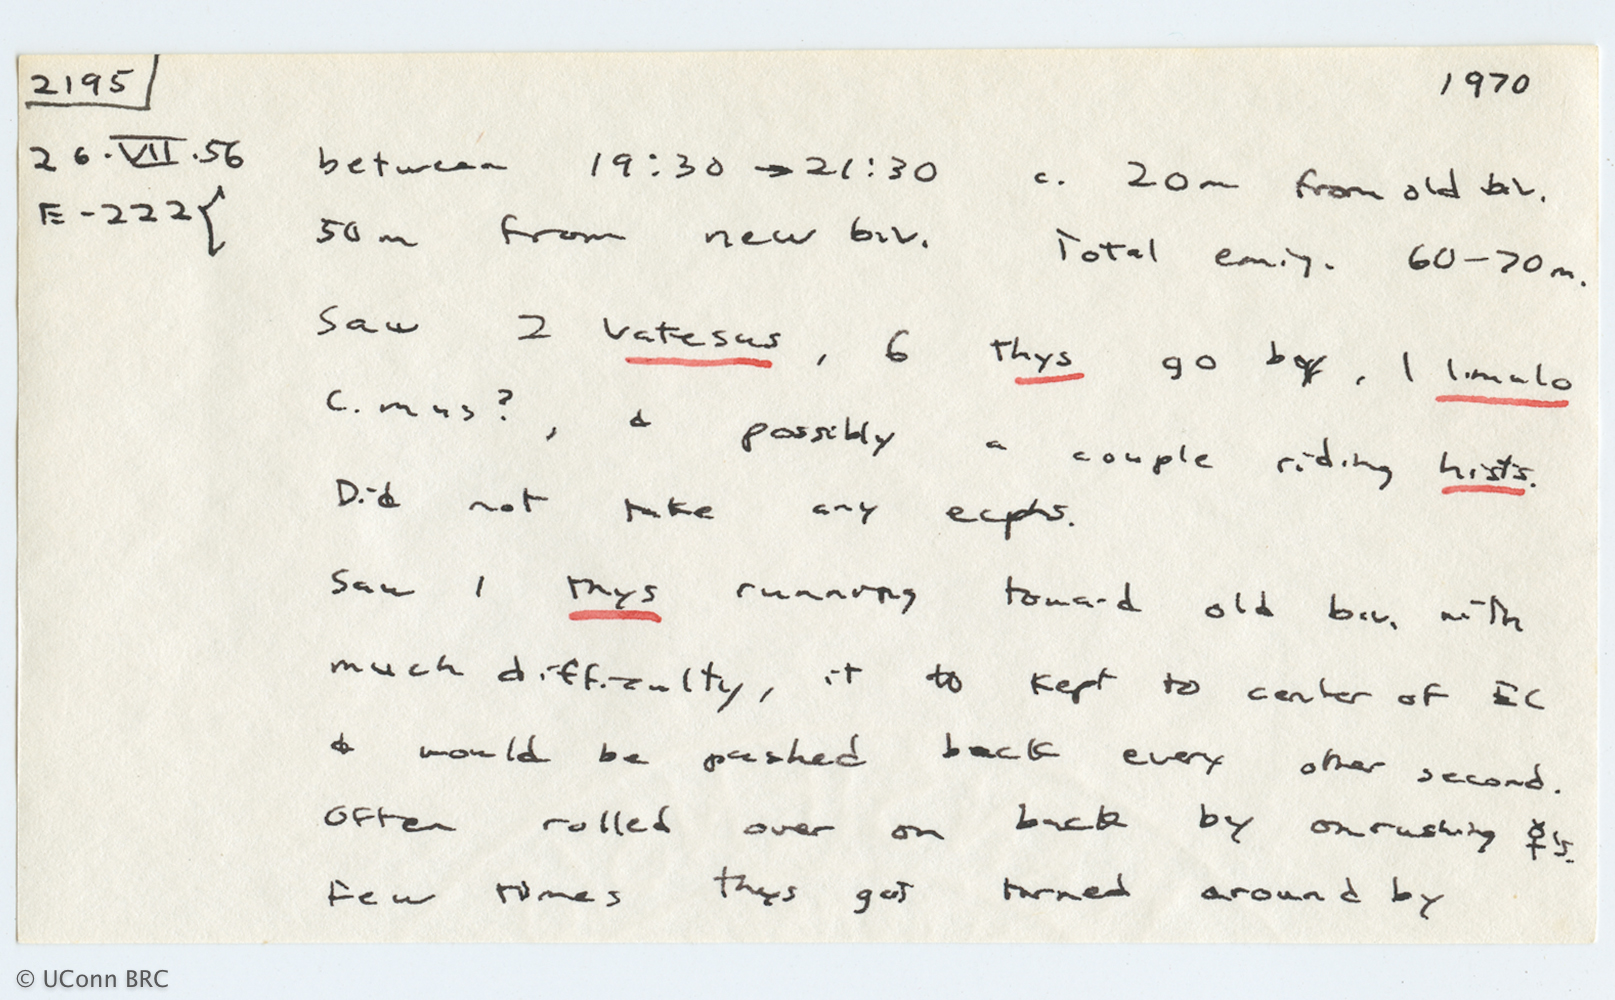 2195 1970
26.VII.56 between 19:30 → 21:30 c. 20m from old biv.
E-222{ 50m from new biv. Total emig. 60-70m.
Saw 2 Vatesus, 6 thys go by, 1 limulo
C. mus?, & possibly a couple riding hists.
Did not take any ecphs.
Saw 1 thys running toward old biv. with
much difficulty, it to kept to center of EC
& would be pushed back every other second.
Often rolled over on back by onrushing ☿'s.
Few times thys got turned around by
© UConn BRC